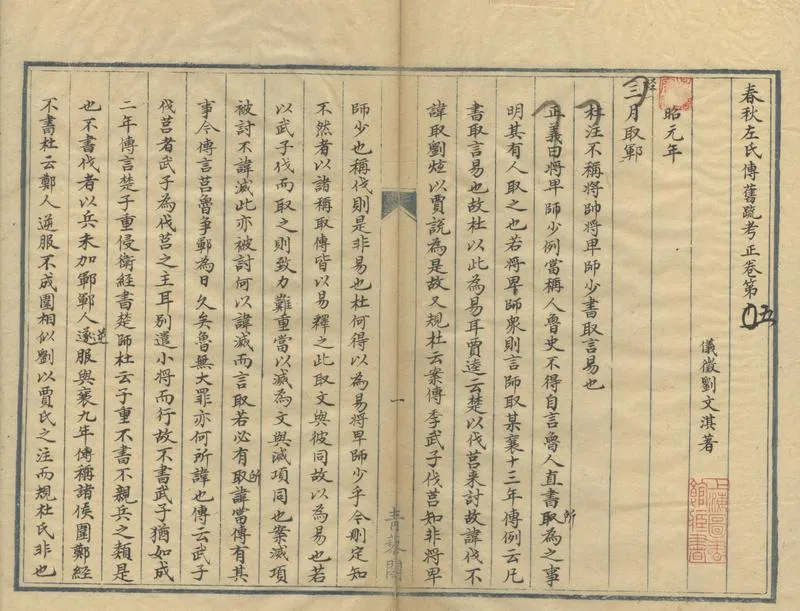 春秋左氏傳舊疏考正卷第五
儀徵劉文淇著
昭元年
經
三月取鄆
杜注不稱將帥將卑師少書取言易也
正義曰將卑師少例當稱人魯史不得自言魯人直書取為之事
所
明其有人取之也若將卑師衆則言師取某襄十三年傳例云凡
書取言易也故杜以此為易耳賈逵云楚以伐莒来討故諱伐不
諱取劉炫以賈說為是故又規杜云案傳季武子伐莒知非將卑
師少也稱伐則是非易也杜何得以為易將卑師少乎今刪定知
不然者以諸稱取傳皆以易釋之此取文與彼同故以為易也若
以武子伐而取之則致力難重當以滅為文與滅項同也案滅項
被討不諱滅此亦被討何以諱滅而言取若必有取諱當傳有其
所
事今傳言莒魯争鄆為日久矣魯無大罪亦何所諱也傳云武子
伐莒者武子為伐莒之主耳别遣小將而行故不書武子猶如成
二年傳言楚子重侵衛經書楚師杜云子重不書不親兵之類是
也不書伐者以兵未加鄆鄆人逆服與襄九年傳稱諸侯圍鄭經
逆
不書杜云鄭人逆服不成圍相似劉以賈氏之注而規杜氏非也
一
青藜閣
上海圖書館藏書